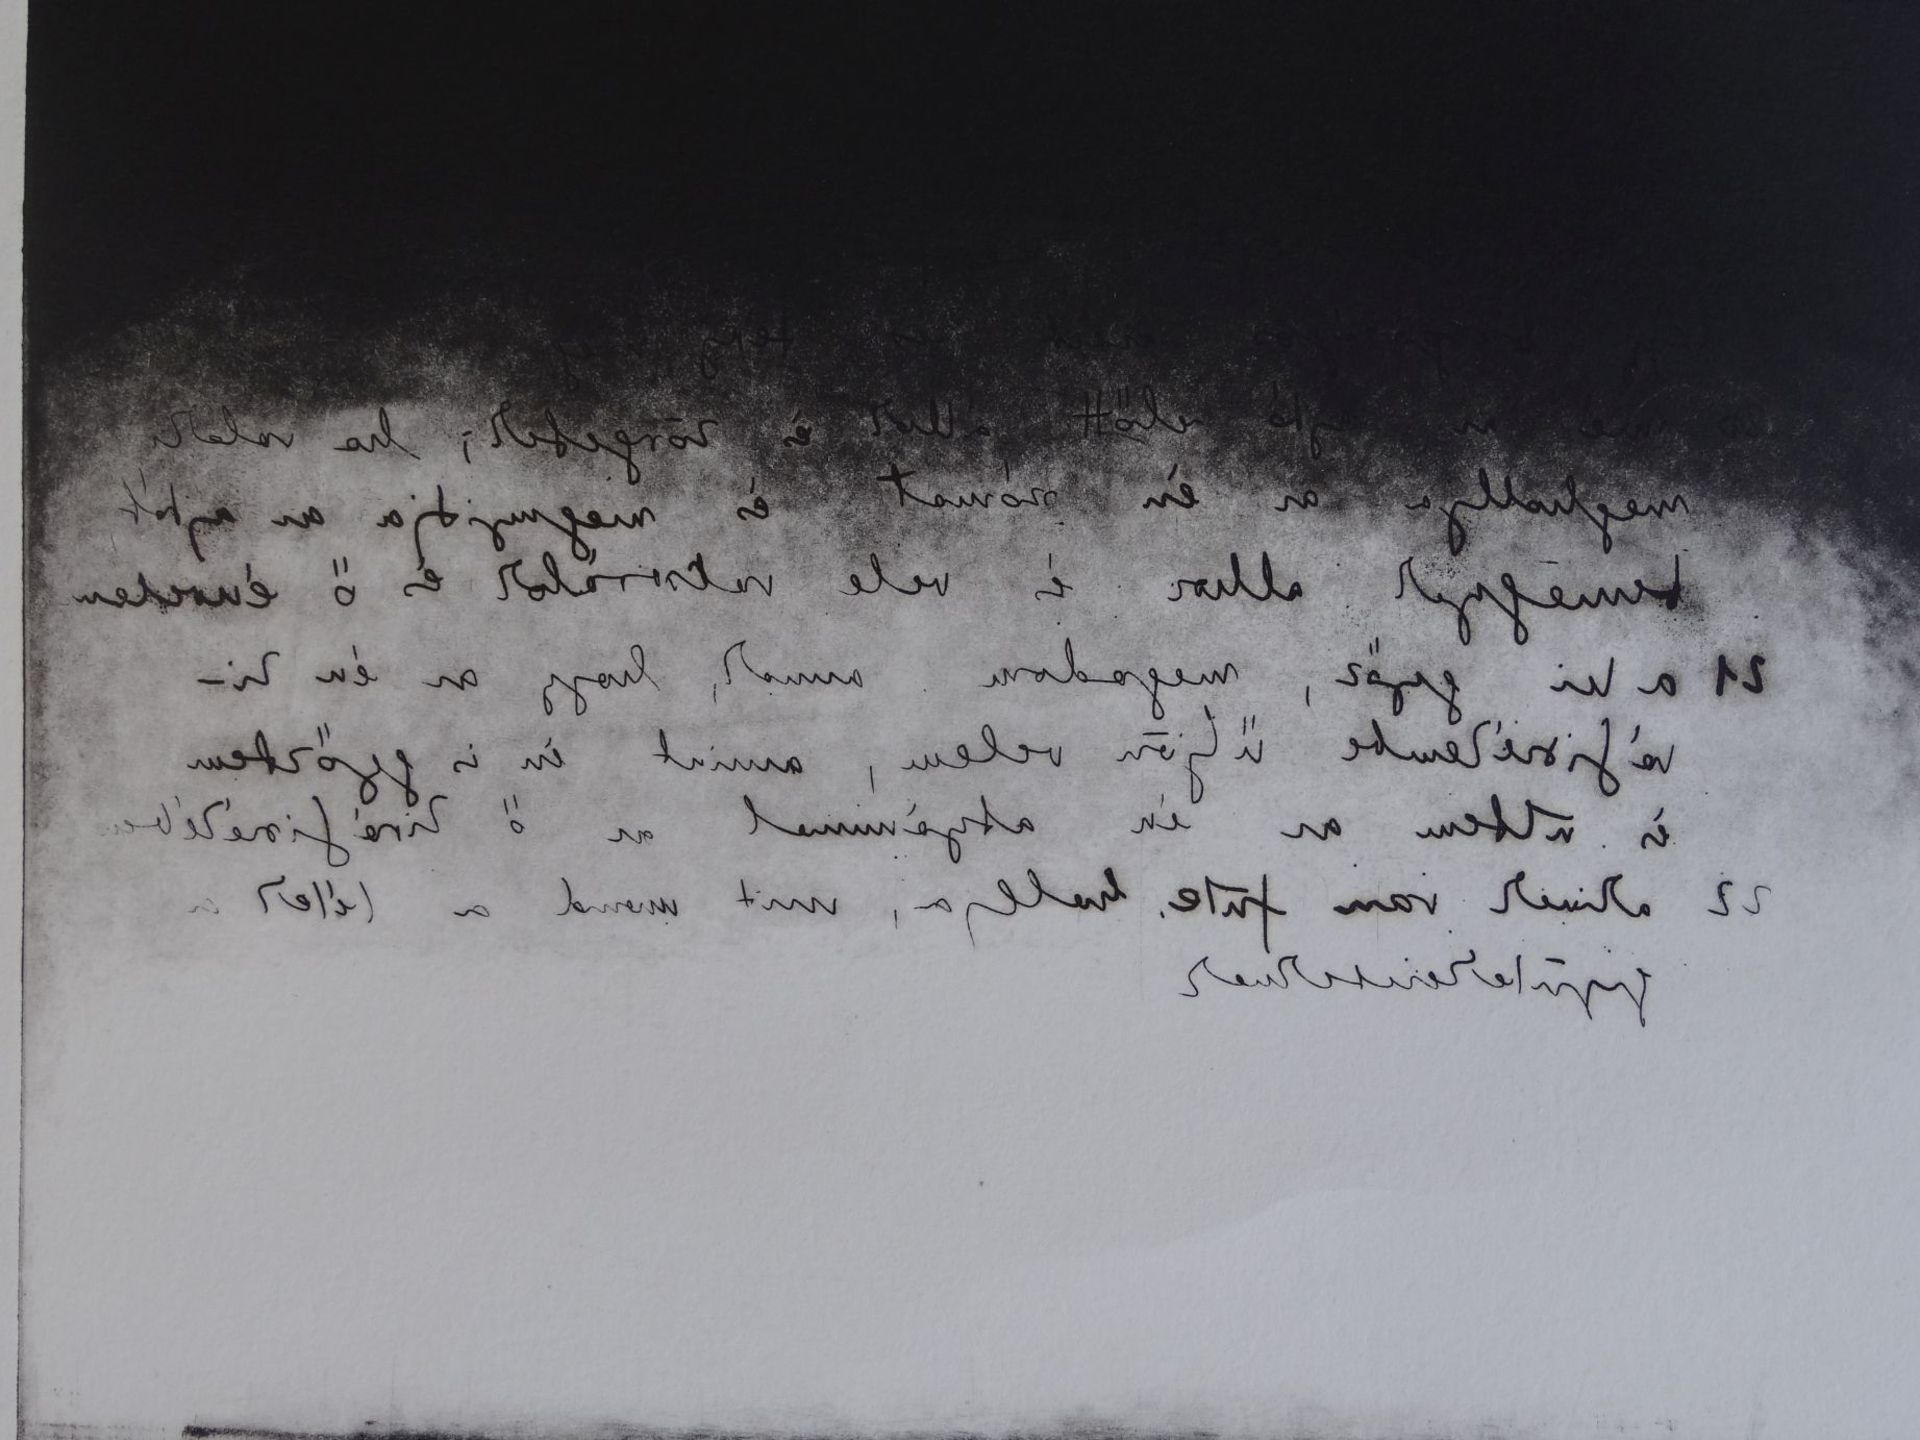 térj meg
ímé az ajtó előtt állok és zörgetek; ha valaki
meghallja az én szómat és megnyitja az ajtót
bemégyek ahhoz és vele vacsorálok és ő énvelem
21 a ki győz, megadom annak, hogy az én ki-
rályiszékembe üljön velem, amint én is győztem
és ültem az én atyámmal az ő királyiszékében
22 akinek van füle, hallja, mit mond a lélek a
gyülekezeteknek